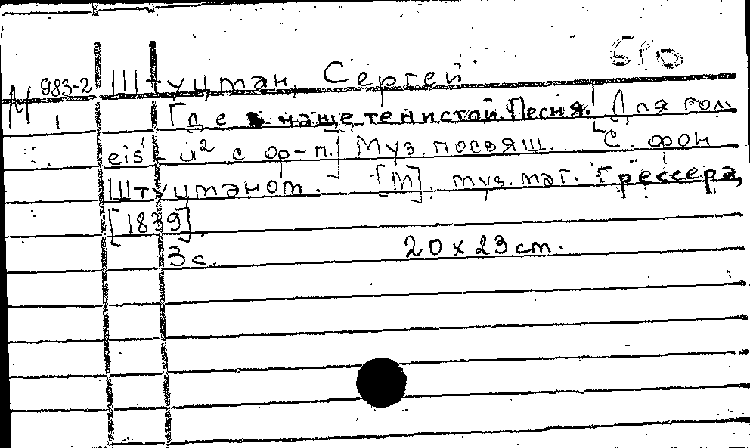 БРО
М 983-2 Штуцман, Сергей
1 Где в чаще тенистой. Песня. [Для гол.
eis¹ - и² с ф-п.] Муз. посвящ. С. фон
Штуцманом. [М], муз. маг. Грессера,
[1839].
3 с. 20 x 23 cm.